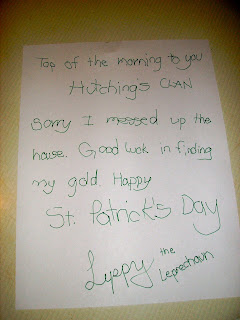 Top of the morning to you
Hutching's CLAN
Sorry I messed up the
house. Good luck in finding
my gold. Happy
St. Patrick's Day
Lyppy the
Leprechaun